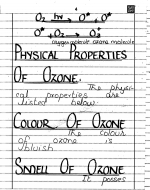 O₂ hν→ O* + O*
O* + O₂ → O₃
oxygen molecule ozone molecule
PHYSICAL PROPERTIES
OF OZONE.
The physi-
cal properties are
listed below
COLOUR OF OZONE
The colour
of ozone is
bluish
SMELL OF OZONE
It posses